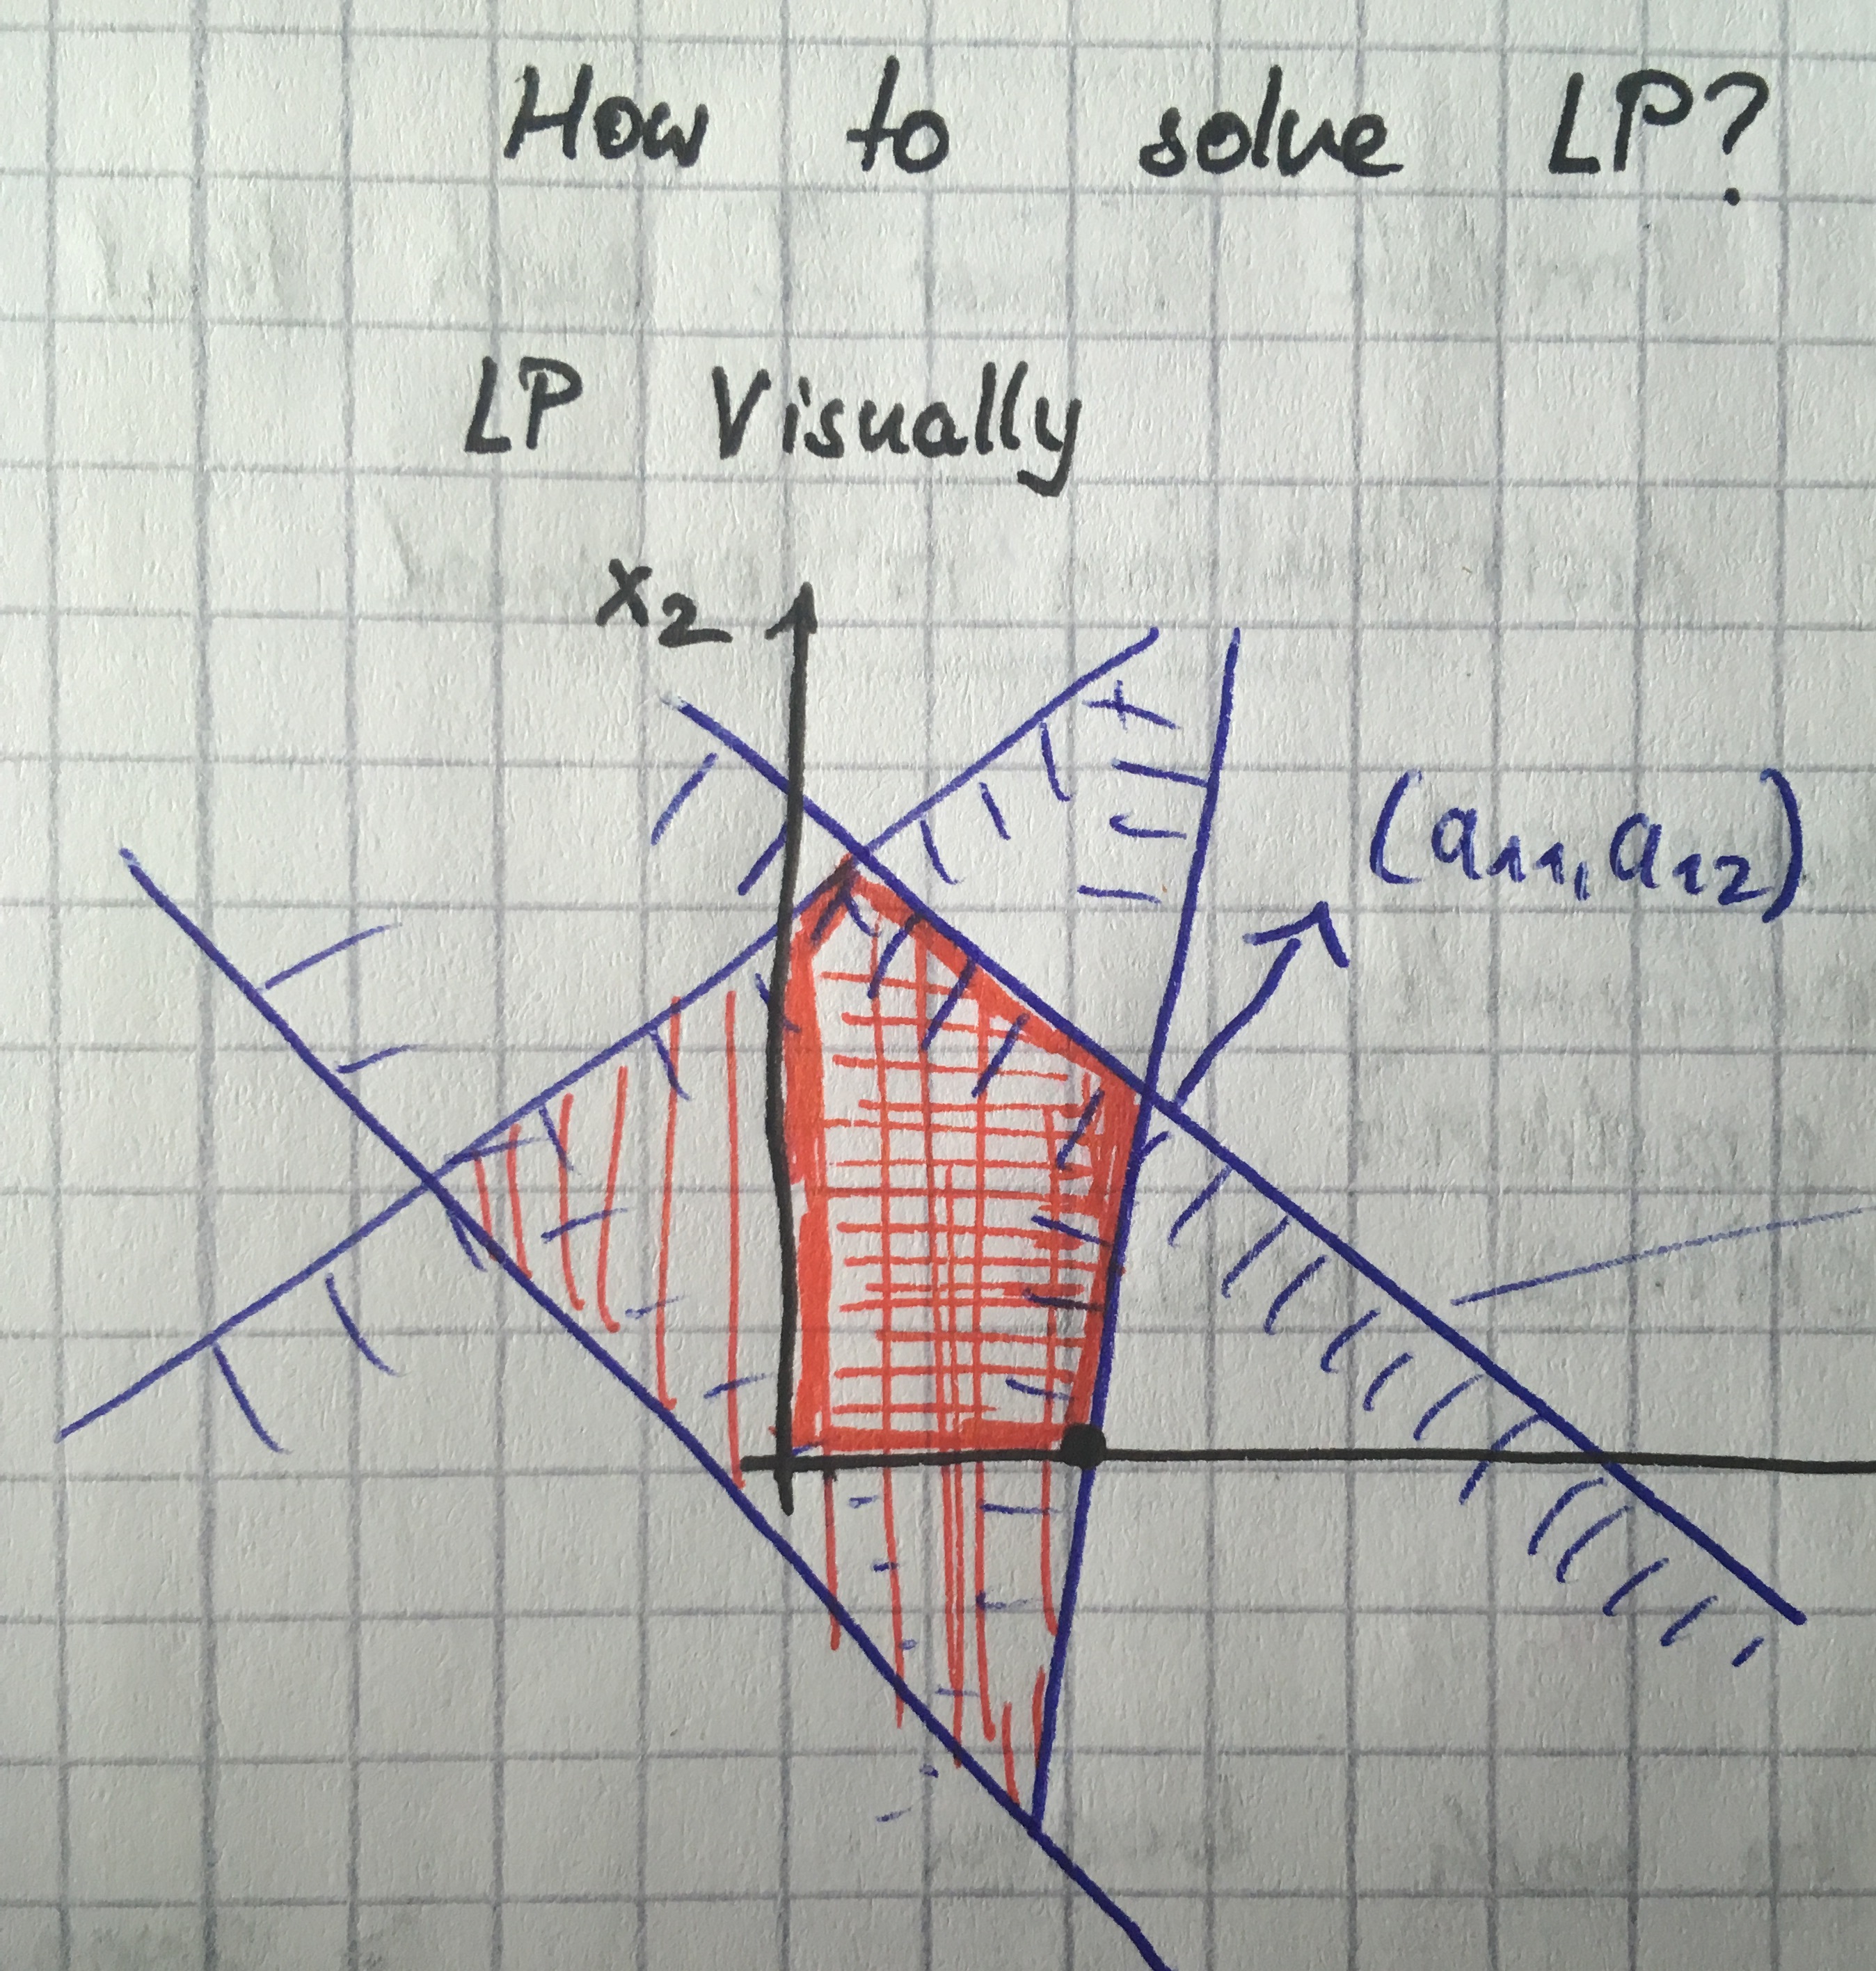 How to solve LP?
LP Visually
x2
(a11, a12)